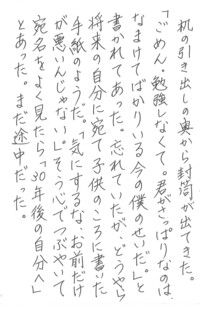 机の引き出しの奥から封筒が出てきた。
「ごめん、勉強しなくて。君がさっぱりなのは、
なまけてばかりいる今の僕のせいだ。」と
書かれてあった。忘れていたが、どうやら
将来の自分に宛て子供のころに書いた
手紙のようだ。「気にするな、お前だけ
が悪いんじゃない。」そう心でつぶやいて
宛名をよく見たら「30年後の自分へ」
とあった。まだ途中だった。